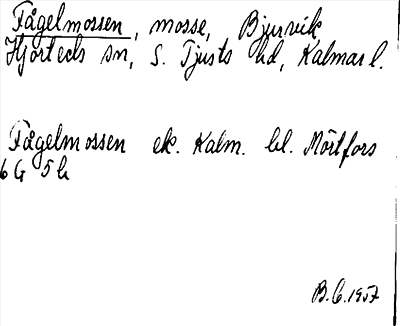 Fågelmossen, mosse, Bjurvik
Hjorteds sn, S. Tjusts hd, Kalmar l.
Fågelmossen ek. Kalm. bl. Mörtfors
6 G 5 h
B.G. 1957